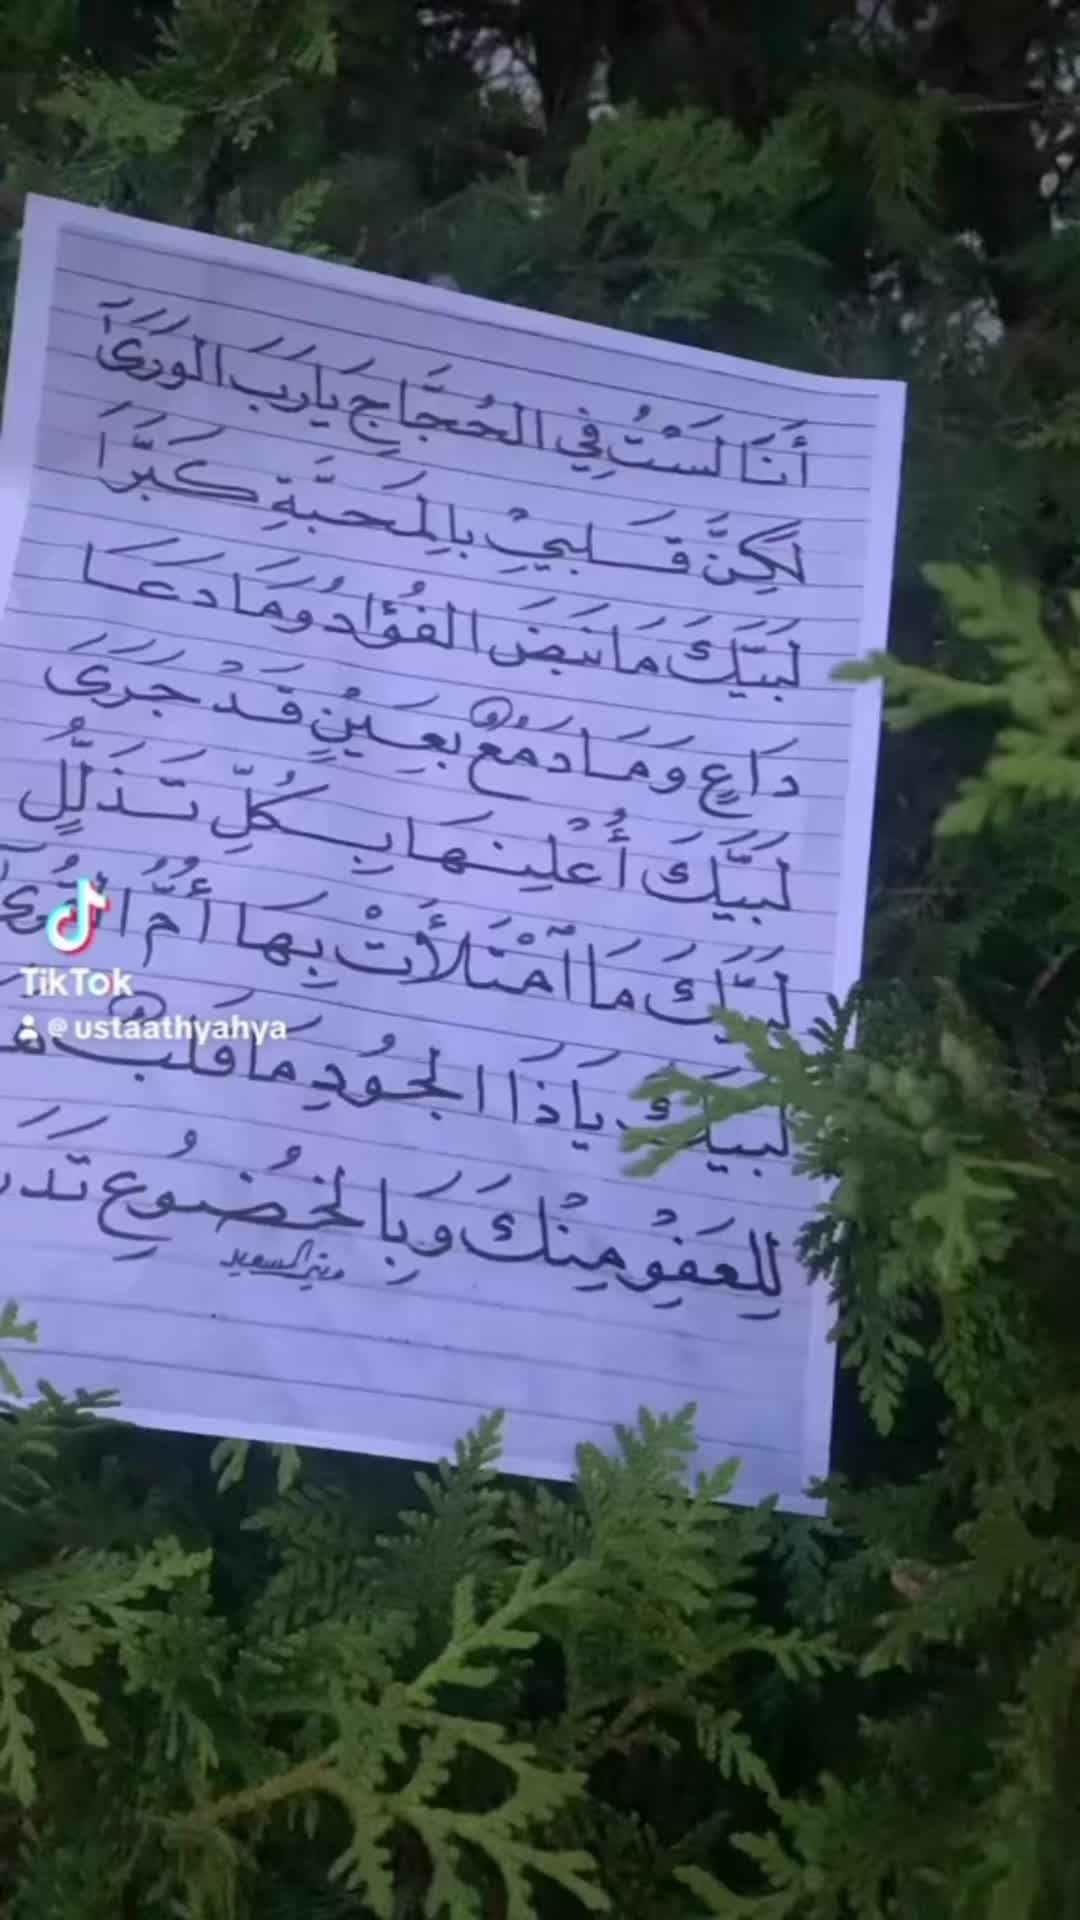 أَنَا لَسْتُ فِي الحُجَّاجِ يَارَبَ الوَرَىَ
لَكِنَّ قَلبِيْ بِالمَحَبَّةِ كَبَّرَا
لَبَيَّكَ مَا نَبَضَ الفُؤَادُ وَمَا دَعَا
دَاعٍ وَمَا دَمْعٌ بِعَيْنٍ قَدْ جَرَىَ
لَبَيَّكَ أُعْلِنهَا بِكُلِّ تَذَلُّلٍ
لَبَيَّكَ مَا آمْتَلَأَتْ بِهَا أُمُّ القُرَىَ
لَبَيَّكَ يَاذَا الجُودِ مَا قَلْبٌ
لِلعَفْوِ مِنْكَ وَبِالخُضُوعِ
منير السعيد
TikTok
@ustaathyahya